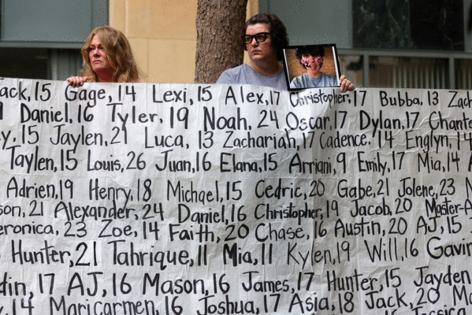 ack, 15 Gage, 14 Lexi, 15 Alex, 17 Christopher, 17 Bubba, 13 Zach
Daniel, 16 Tyler, 19 Noah, 24 Oscar, 17 Dylan, 17 Chant
y, 15 Jaylen, 21 Luca, 13 Zachariah, 17 Cadence, 14 Englyn, 14
Taylen, 15 Louis, 26 Juan, 16 Elana, 15 Arriani, 9 Emily, 17 Mia, 14
Adrien, 19 Henry, 18 Michael, 15 Cedric, 20 Gabe, 21 Jolene, 23
son, 21 Alexander, 24 Daniel, 16 Christopher, 19 Jacob, 20 Master-A
eronica, 23 Zoe, 14 Faith, 20 Chase, 16 Austin, 20 AJ, 15
Hunter, 21 Tahrique, 11 Mia, 11 Kylen, 19 Will, 16 Gavi
din, 17 AJ, 16 Mason, 16 James, 17 Hunter, 15 Jayden
14 Maricarmen, 16 Joshua, 17 Asia, 18 Jack, 20 M